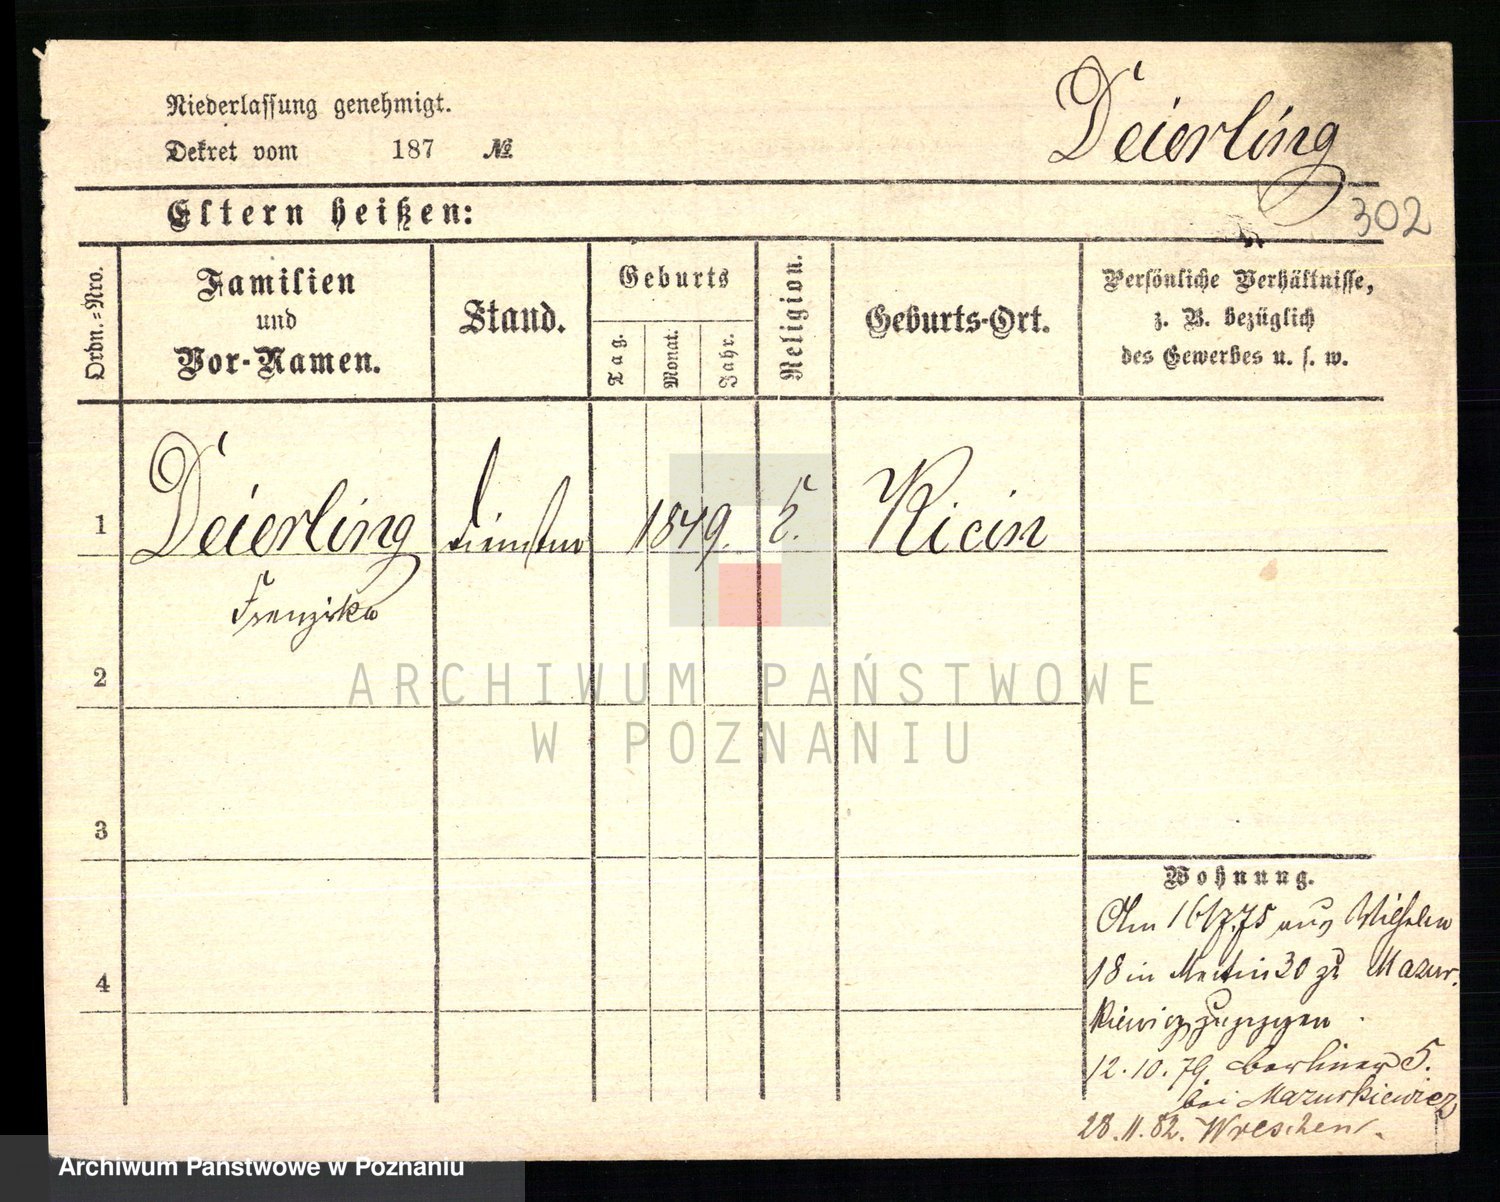 Niederlassung genehmigt.
Dekret vom 187 №
Deierling
302
Eltern heißen:
Ordn.-Nro.
Familien
und
Vor-Namen.
Stand.
Geburts
Tag.
Monat.
Jahr.
Religion.
Geburts-Ort.
Persönliche Verhältnisse,
z. B. bezüglich
des Gewerbes u. s. w.
1 Deierling 1849. Kicin
Franziska
2
3
4
Wohnung.
Am 16/7.75 aus Wilhelm
18 in Martin 30 zu Mazur-
kiewicz zugezogen
12.10.79 Berliner 5.
bei Mazurkiewicz
28.11.82. Wreschen.
ARCHIWUM PAŃSTWOWE
W POZNANIU
Archiwum Państwowe w Poznaniu